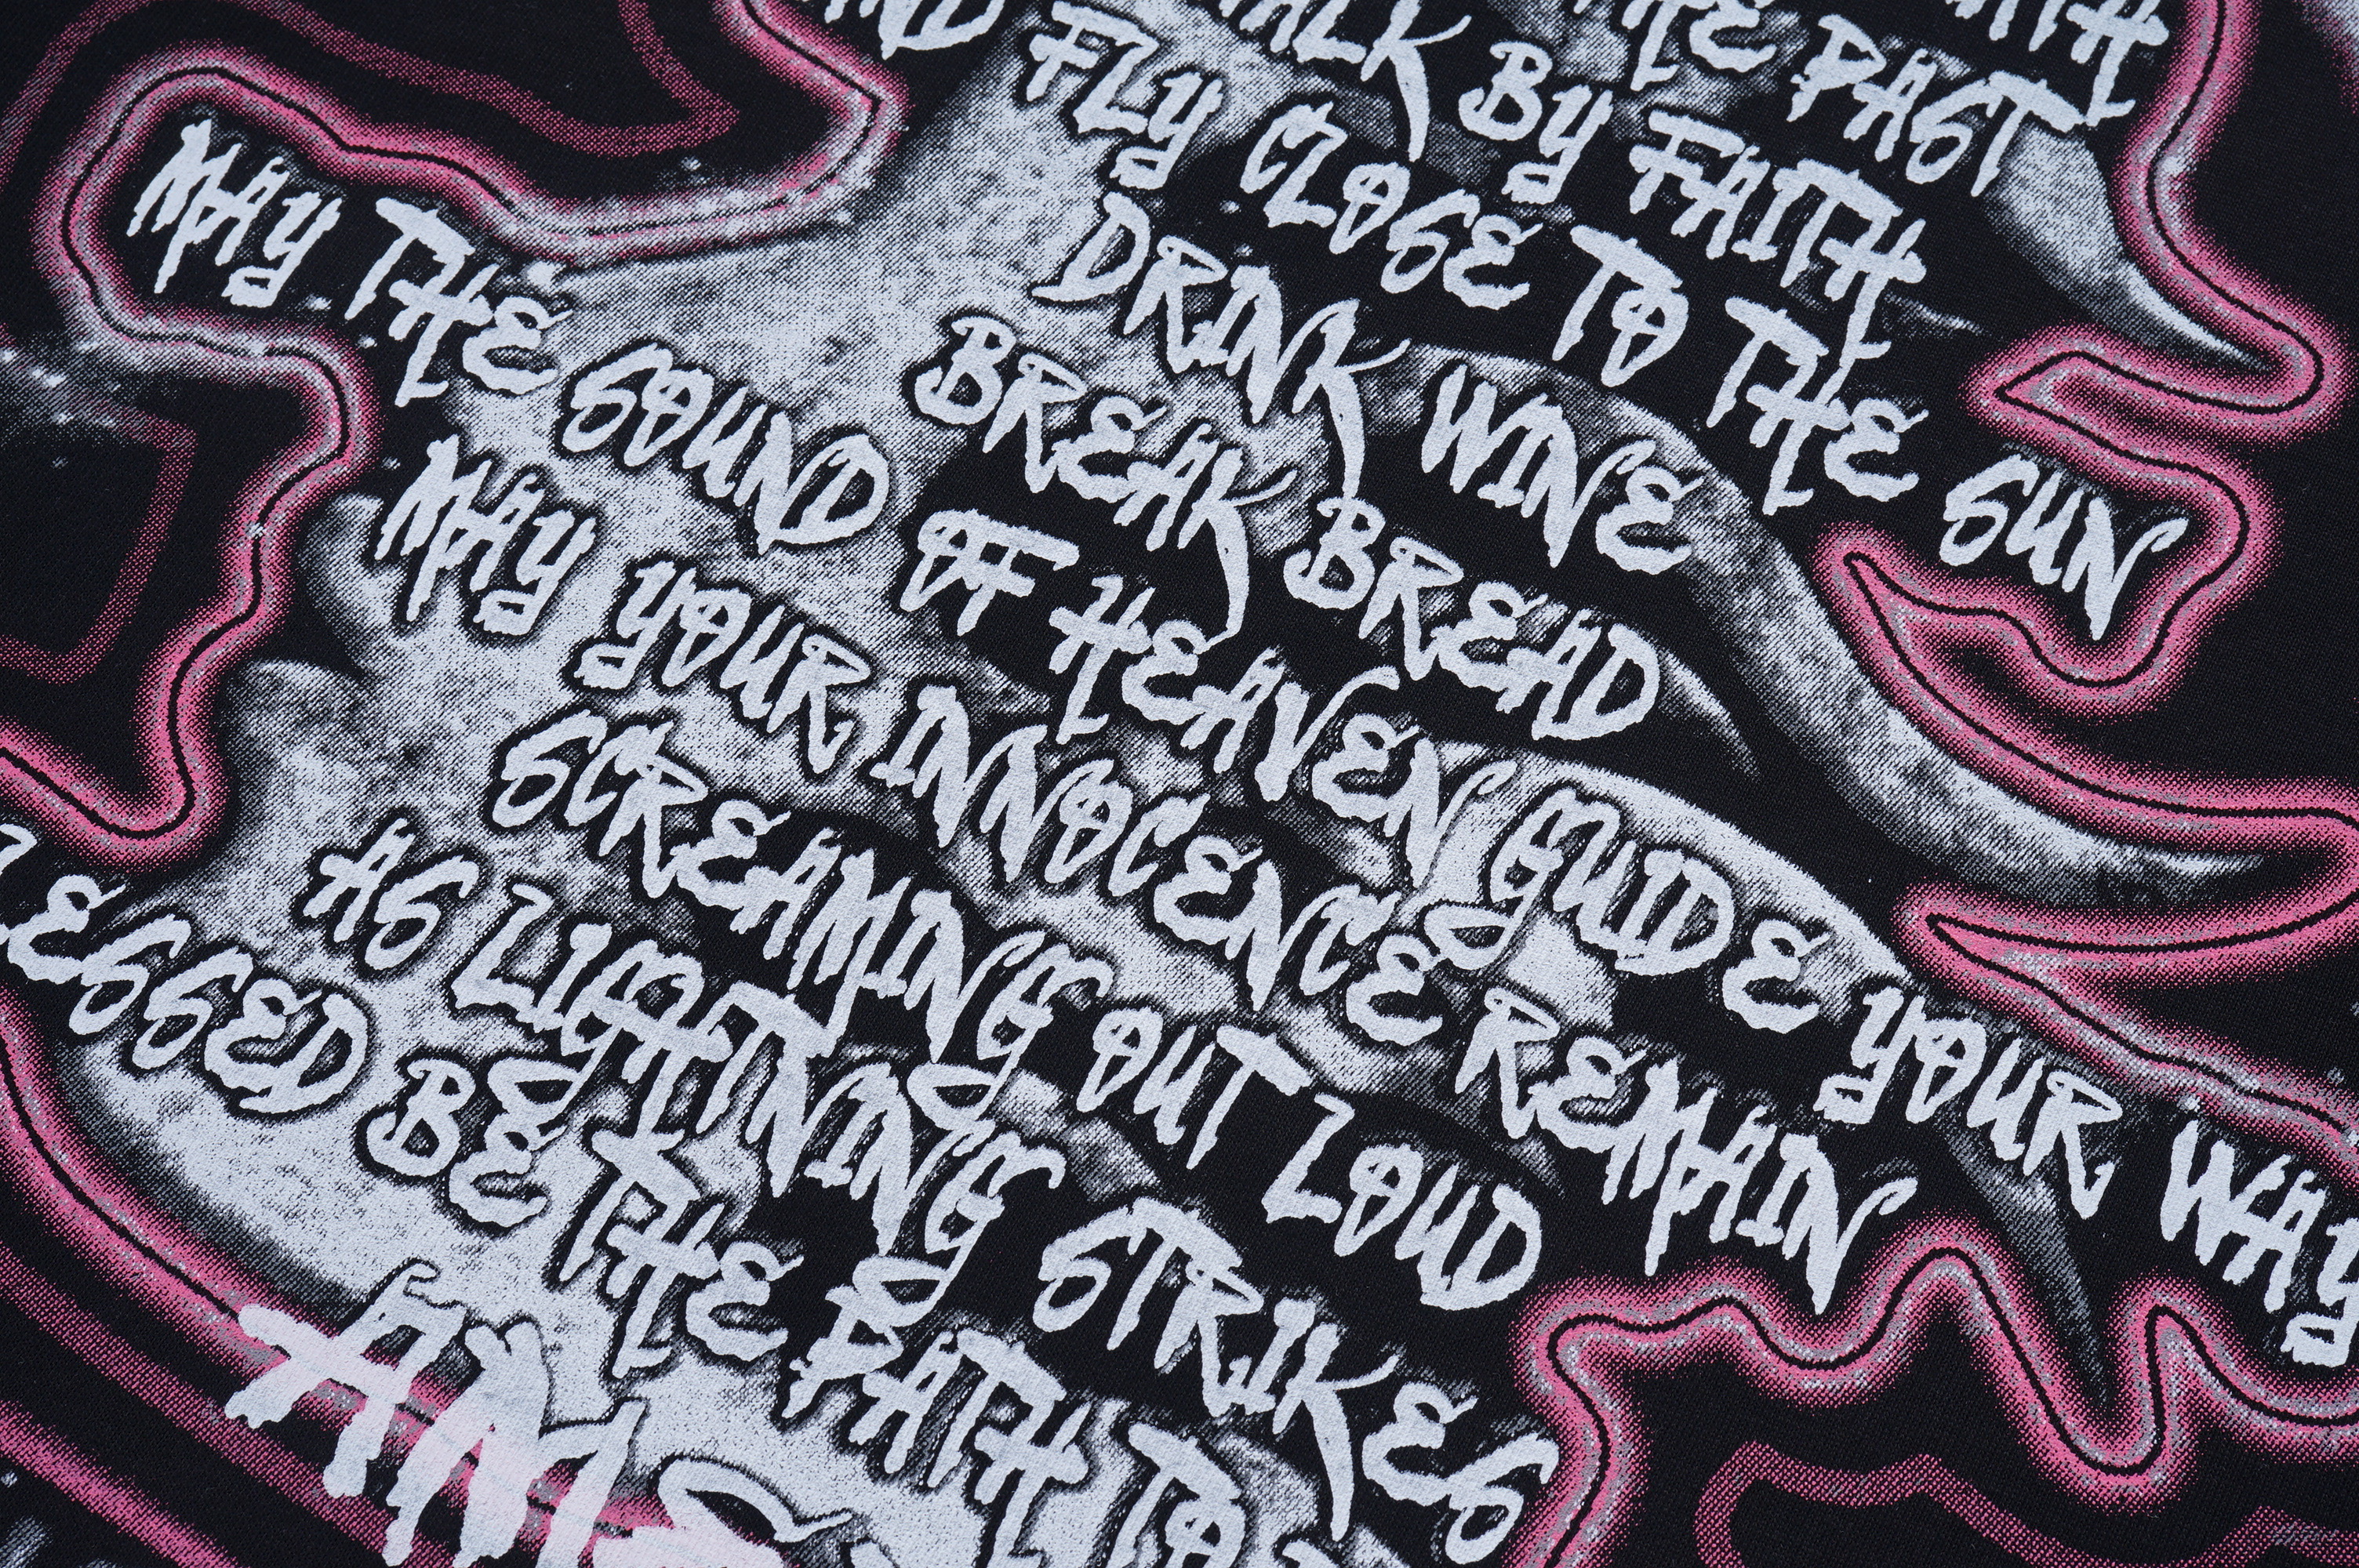 FAITH
THE PAST
WALK BY FAITH
AND FLY CLOSE TO THE SUN
DRINK WINE
BREAK BREAD
MAY THE SOUND OF HEAVEN GUIDE YOUR WAY
MAY YOUR INNOCENCE REMAIN
SCREAMING OUT LOUD
AS LIGHTNING STRIKES
LESSED BE THE PATH TO
AM